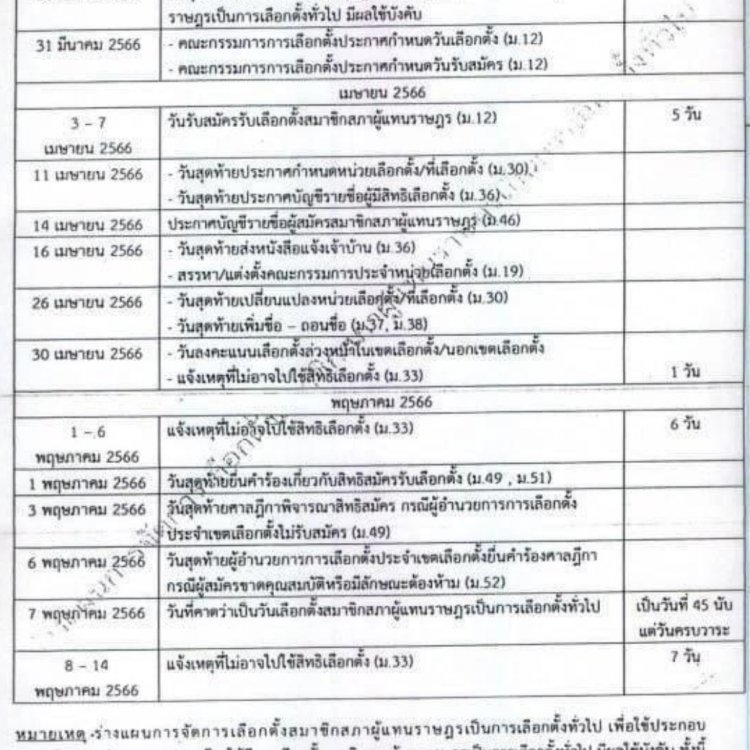 ราษฎรเป็นการเลือกตั้งทั่วไป มีผลใช้บังคับ
31 มีนาคม 2566
- คณะกรรมการการเลือกตั้งประกาศกำหนดวันเลือกตั้ง (ม.12)
- คณะกรรมการการเลือกตั้งประกาศกำหนดวันรับสมัคร (ม.12)
เมษายน 2566
3 – 7
เมษายน 2566
วันรับสมัครรับเลือกตั้งสมาชิกสภาผู้แทนราษฎร (ม.12)
5 วัน
11 เมษายน 2566
- วันสุดท้ายประกาศกำหนดหน่วยเลือกตั้ง/ที่เลือกตั้ง (ม.30)
- วันสุดท้ายประกาศบัญชีรายชื่อผู้มีสิทธิเลือกตั้ง (ม.36)
14 เมษายน 2566
ประกาศบัญชีรายชื่อผู้สมัครสมาชิกสภาผู้แทนราษฎร (ม.46)
16 เมษายน 2566
- วันสุดท้ายส่งหนังสือแจ้งเจ้าบ้าน (ม.36)
- สรรหา/แต่งตั้งคณะกรรมการประจำหน่วยเลือกตั้ง (ม.19)
26 เมษายน 2566
- วันสุดท้ายเปลี่ยนแปลงหน่วยเลือกตั้ง/ที่เลือกตั้ง (ม.30)
- วันสุดท้ายเพิ่มชื่อ – ถอนชื่อ (ม.37, ม.38)
30 เมษายน 2566
- วันลงคะแนนเลือกตั้งล่วงหน้าในเขตเลือกตั้ง/นอกเขตเลือกตั้ง
- แจ้งเหตุที่ไม่อาจไปใช้สิทธิเลือกตั้ง (ม.33)
1 วัน
พฤษภาคม 2566
1 – 6
พฤษภาคม 2566
แจ้งเหตุที่ไม่อาจไปใช้สิทธิเลือกตั้ง (ม.33)
6 วัน
1 พฤษภาคม 2566
วันสุดท้ายยื่นคำร้องเกี่ยวกับสิทธิสมัครรับเลือกตั้ง (ม.49 , ม.51)
3 พฤษภาคม 2566
วันสุดท้ายศาลฎีกาพิจารณาสิทธิสมัคร กรณีผู้อำนวยการการเลือกตั้ง
ประจำเขตเลือกตั้งไม่รับสมัคร (ม.49)
6 พฤษภาคม 2566
วันสุดท้ายผู้อำนวยการการเลือกตั้งประจำเขตเลือกตั้งยื่นคำร้องศาลฎีกา
กรณีผู้สมัครขาดคุณสมบัติหรือมีลักษณะต้องห้าม (ม.52)
7 พฤษภาคม 2566
วันที่คาดว่าเป็นวันเลือกตั้งสมาชิกสภาผู้แทนราษฎรเป็นการเลือกตั้งทั่วไป
เป็นวันที่ 45 นับ
แต่วันครบวาระ
8 – 14
พฤษภาคม 2566
แจ้งเหตุที่ไม่อาจไปใช้สิทธิเลือกตั้ง (ม.33)
7 วัน
หมายเหตุ ร่างแผนการจัดการเลือกตั้งสมาชิกสภาผู้แทนราษฎรเป็นการเลือกตั้งทั่วไป เพื่อใช้ประกอบ